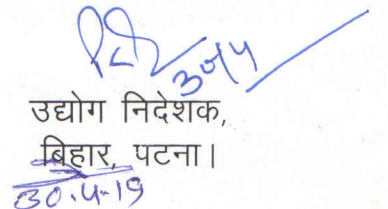 30/4
उद्योग निदेशक,
बिहार, पटना।
30.4.19